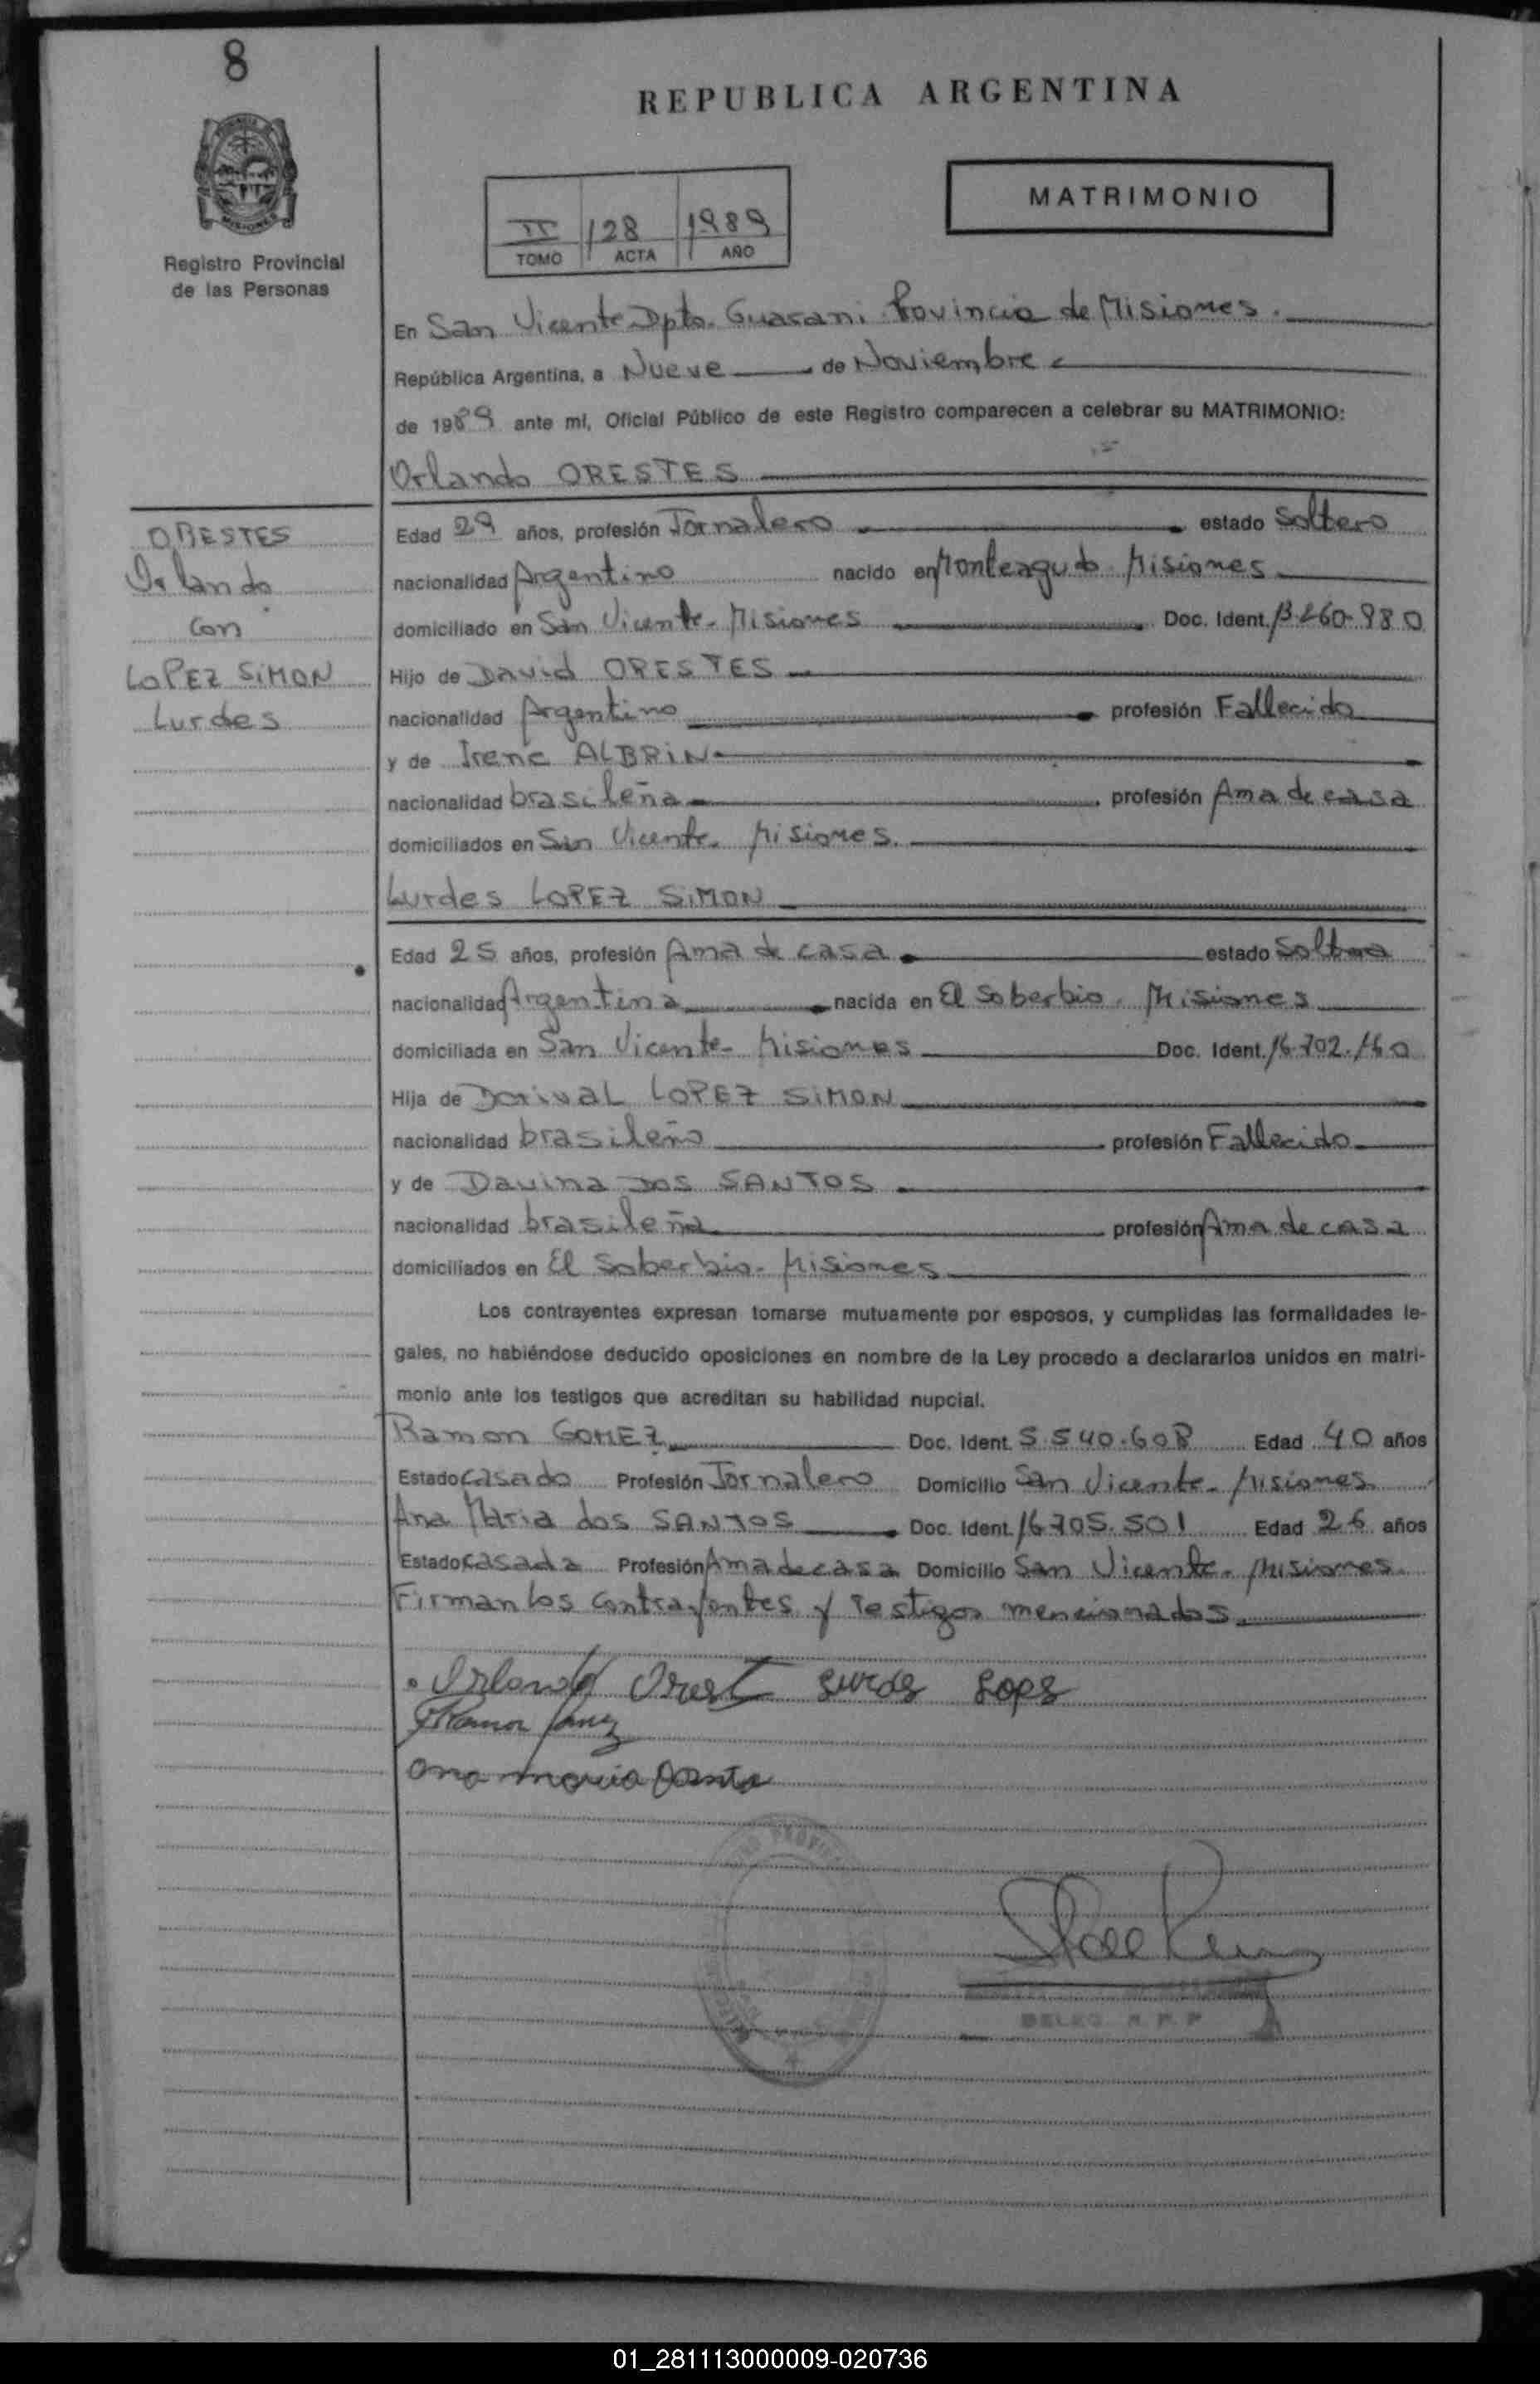 8
REPUBLICA ARGENTINA
MATRIMONIO
II 128 1989
TOMO ACTA AÑO
Registro Provincial
de las Personas
En San Vicente Dpto. Guarani Provincia de Misiones.
República Argentina, a Nueve de Noviembre
de 1989 ante mí, Oficial Público de este Registro comparecen a celebrar su MATRIMONIO:
Orlando ORESTES
ORESTES
Orlando
con
LOPEZ SIMON
Lurdes
Edad 29 años, profesión Jornalero estado Soltero
nacionalidad Argentino nacido en Monteagudo Misiones
domiciliado en San Vicente - Misiones Doc. Ident. 13.260.980
Hijo de David ORESTES
nacionalidad Argentino profesión Fallecido
y de Irene ALBRIN
nacionalidad brasileña profesión Ama de casa
domiciliados en San Vicente - Misiones.
Lurdes LOPEZ SIMON
Edad 25 años, profesión Ama de casa estado Soltera
nacionalidad Argentina nacida en El Soberbio. Misiones
domiciliada en San Vicente - Misiones Doc. Ident. 16.702.160
Hija de Dorival LOPEZ SIMON
nacionalidad brasileño profesión Fallecido
y de Davina DOS SANTOS
nacionalidad brasileña profesión Ama de casa
domiciliados en El Soberbio - Misiones
Los contrayentes expresan tomarse mutuamente por esposos, y cumplidas las formalidades le-
gales, no habiéndose deducido oposiciones en nombre de la Ley procedo a declararlos unidos en matri-
monio ante los testigos que acreditan su habilidad nupcial.
Ramon GOMEZ Doc. Ident. 5.540.608 Edad 40 años
Estado Casado Profesión Jornalero Domicilio San Vicente - Misiones
Ana Maria dos SANTOS Doc. Ident. 16.705.501 Edad 26 años
Estado Casada Profesión Ama de casa Domicilio San Vicente - Misiones.
Firman los contrayentes y Testigos mencionados.
Orlando Orest Lurds Lops
Ramon
ana maria
DELEG. R. P. P
01_281113000009-020736